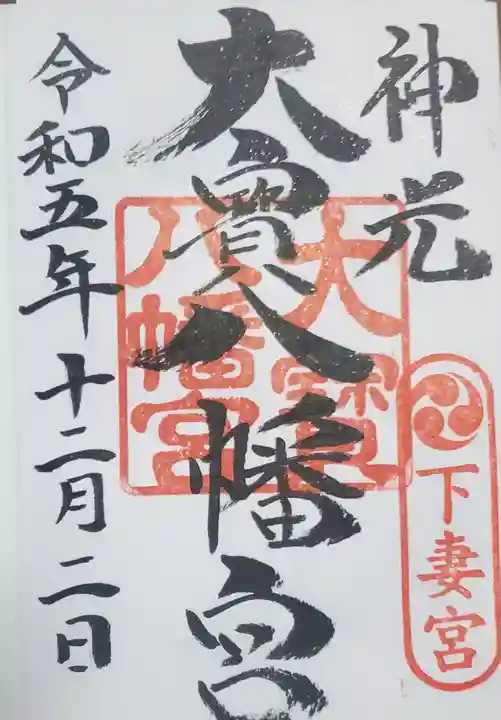 神光
下妻宮
大寳八幡宮
大寳
八幡宮
令和五年十二月二日